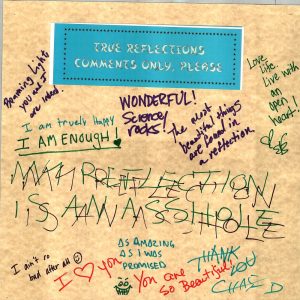 TRUE REFLECTIONS
COMMENTS ONLY, PLEASE
Love
Life
Live with
an
open
heart
WONDERFUL!
Science
rocks!
The most
beautiful things
are found in
a reflection
I am truely Happy
I AM ENOUGH!
MY REFLECTION
IS AN ASSHOLE
I ain't so
bad after all
I ♥ you
AS AMAZING
AS I WAS
PROMISED
You are
so Beautiful!
THANK
YOU
CHASE D